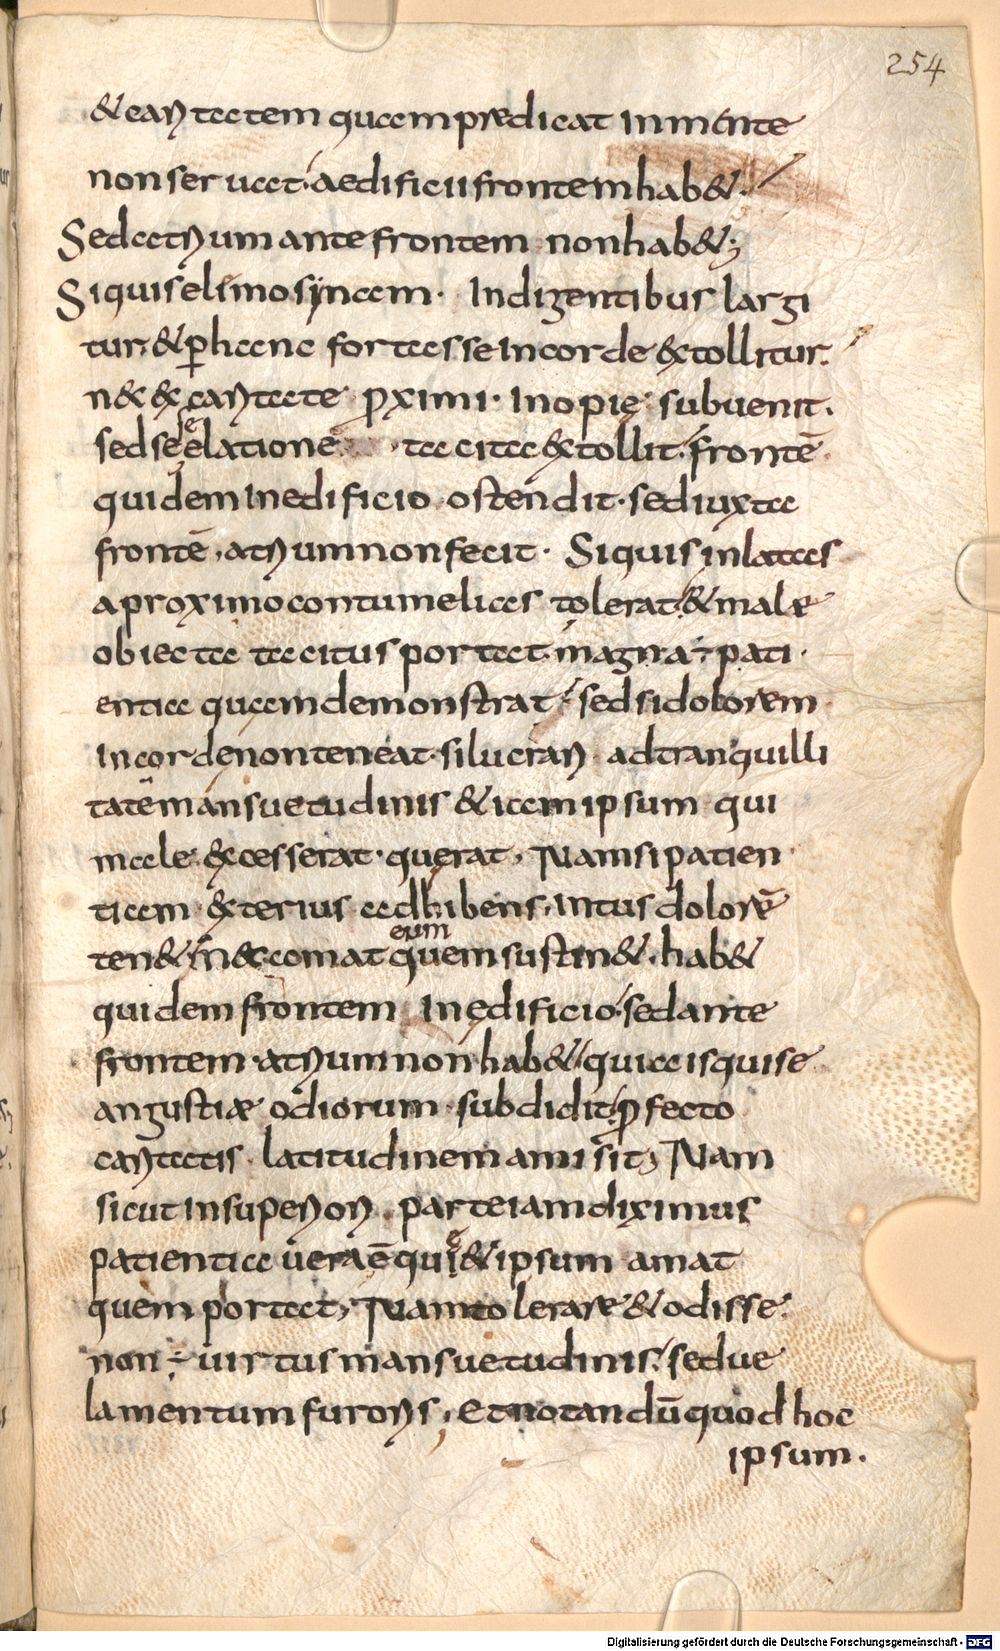 254
& caritatem quam prædicat In mente
non seruat. aedificii frontem hab&.
Sed atrium ante frontem non hab&;
Si quis elimosynam. Indigentibus largi
tur. & p hanc fortasse In corde extollitur.
n& ex caritate pximi. Inopię subuenit.
sed se elatione tacita extollit. frontē
quidem In edificio ostendit. sed iuxta
frontē, atrium non fecit. Si quis inlatas
a proximo contumelias tolerat. & male
obiecta tacitus portat. magna ÷ pati
entia quam demonstrat. sed si dolorem
In corde non teneat. si lucrari ad tranquilli
tatē mansuetudinis & iam ipsum qui
male excesserat. querat, Nam si patien
tiam exterius adhibens, Intus dolorē
ten& n& amat eum quem sustin&. hab&
quidem frontem In edificio. sed ante
frontem. atrium non hab& quia is qui se
angustiæ odiorum subdidit. pfecto
caritatis latitudinem amisit; Nam
sicut In superiori parte iam diximus
patientia uera ē que & ipsum amat
quem portat; Nam tolerare & odisse.
non ÷ uirtus mansuetudinis. sed ue
lamentum furoris, Et notandū quod hoc
ipsum.
Digitalisierung gefördert durch die Deutsche Forschungsgemeinschaft - DFG